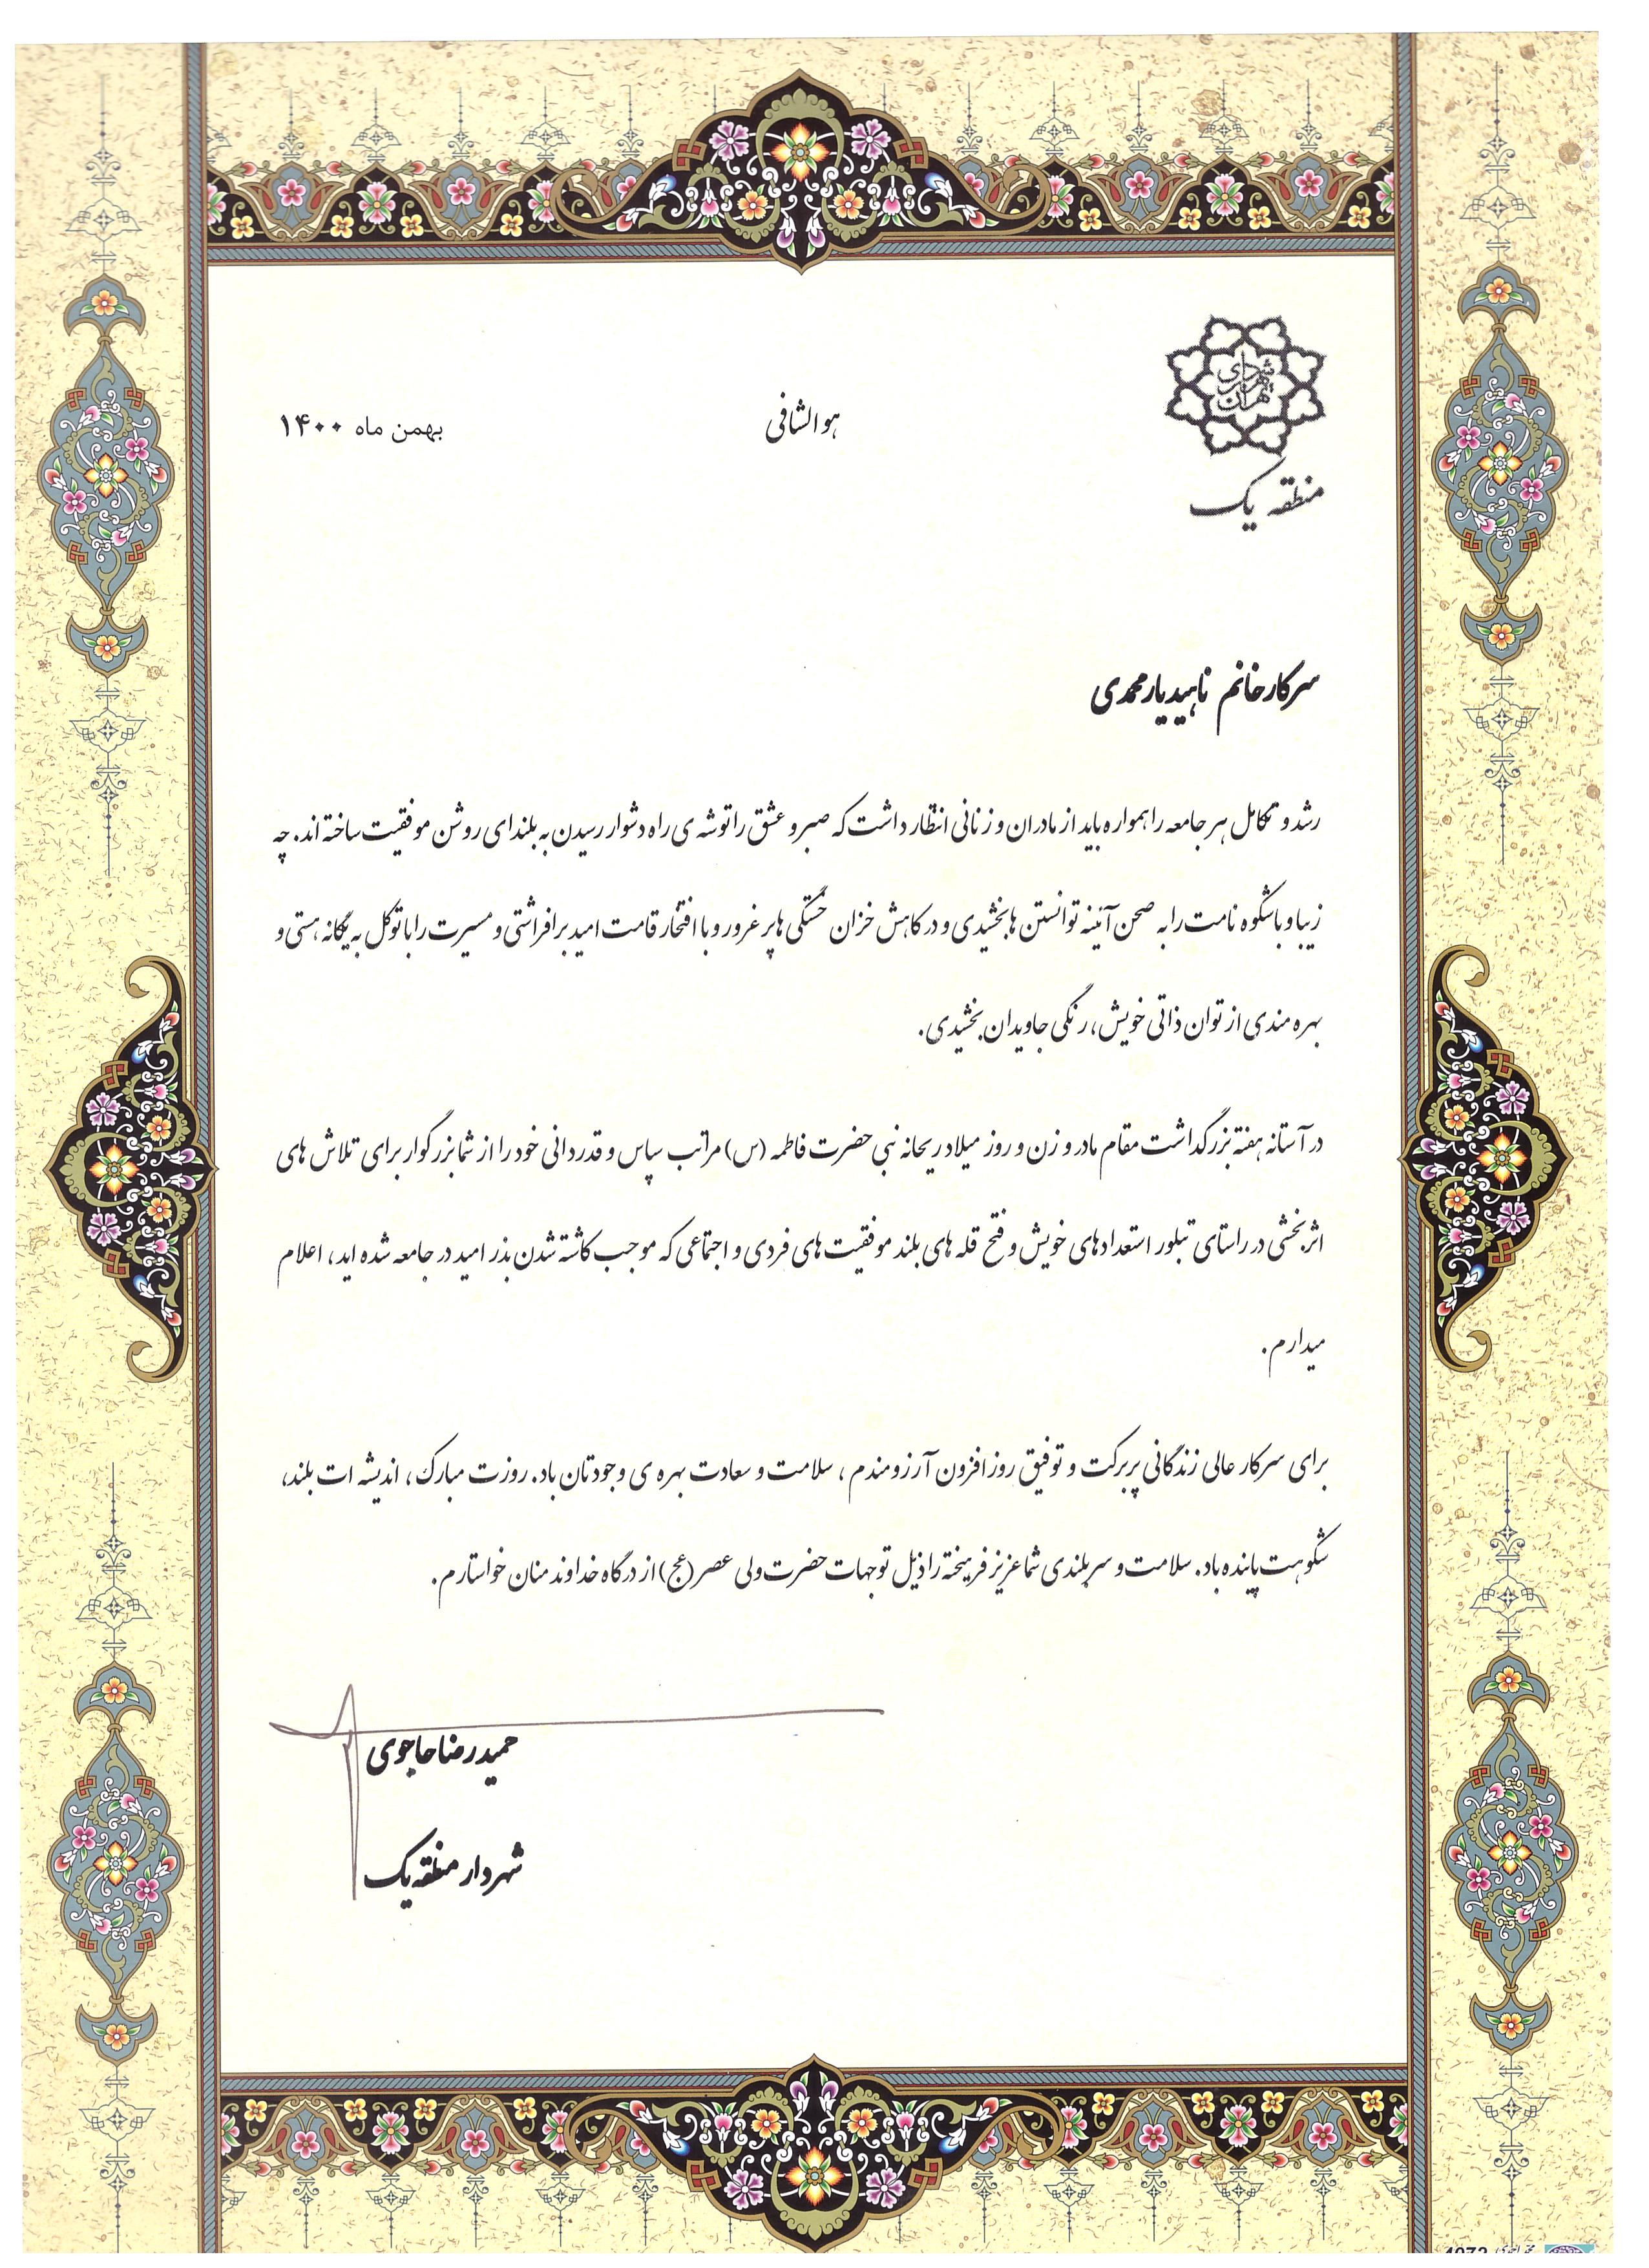 شهرداری تهران
منطقه یک
هوالشافی
بهمن ماه ۱۴۰۰
سرکار خانم ناهید یارمحمدی
رشد و تکامل هر جامعه را همواره باید از مادران و زنانی انتظار داشت که صبر و عشق را توشه ی راه دشوار رسیدن به بلندای روشن موفقیت ساخته اند. چه
زیبا و باشکوه نامت را به صحن آئینه توانستن ها بخشیدی و در کاهش خزان خستگی ها پر غرور و با افتخار قامت امید برافراشتی و مسیرت را با توکل به یگانه هستی و
بهره مندی از توان ذاتی خویش، رنگی جاویدان بخشیدی.
در آستانه هفته بزرگداشت مقام مادر و زن و روز میلاد ریحانه نبی حضرت فاطمه (س) مراتب سپاس و قدردانی خود را از شما بزرگوار برای تلاش های
اثربخشی در راستای تبلور استعدادهای خویش و فتح قله های بلند موفقیت های فردی و اجتماعی که موجب کاشته شدن بذر امید در جامعه شده اید، اعلام
میدارم.
برای سرکار عالی زندگانی پربرکت و توفیق روز افزون آرزومندم، سلامت و سعادت بهره ی وجودتان باد. روزت مبارک، اندیشه ات بلند،
شکوهت پاینده باد. سلامت و سربلندی شما عزیز فرهیخته را ذیل توجهات حضرت ولی عصر (عج) از درگاه خداوند منان خواستارم.
حمیدرضا حاجوی
شهردار منطقه یک